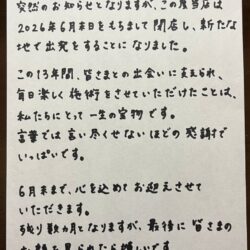 突然のお知らせとなりますが、この度当店は
2026年6月末をもちまして閉店し、新たな
地で出発をすることになりました。
この13年間、皆さまとの出会いに支えられ、
毎日楽しく施術をさせていただけたことは、
私たちにとって一生の宝物です。
言葉では言い尽くせないほどの感謝で
いっぱいです。
6月末まで、心を込めてお迎えさせて
いただきます。
残り数ヵ月となりますが、最後に皆さまの
お顔を見られたら嬉しいです